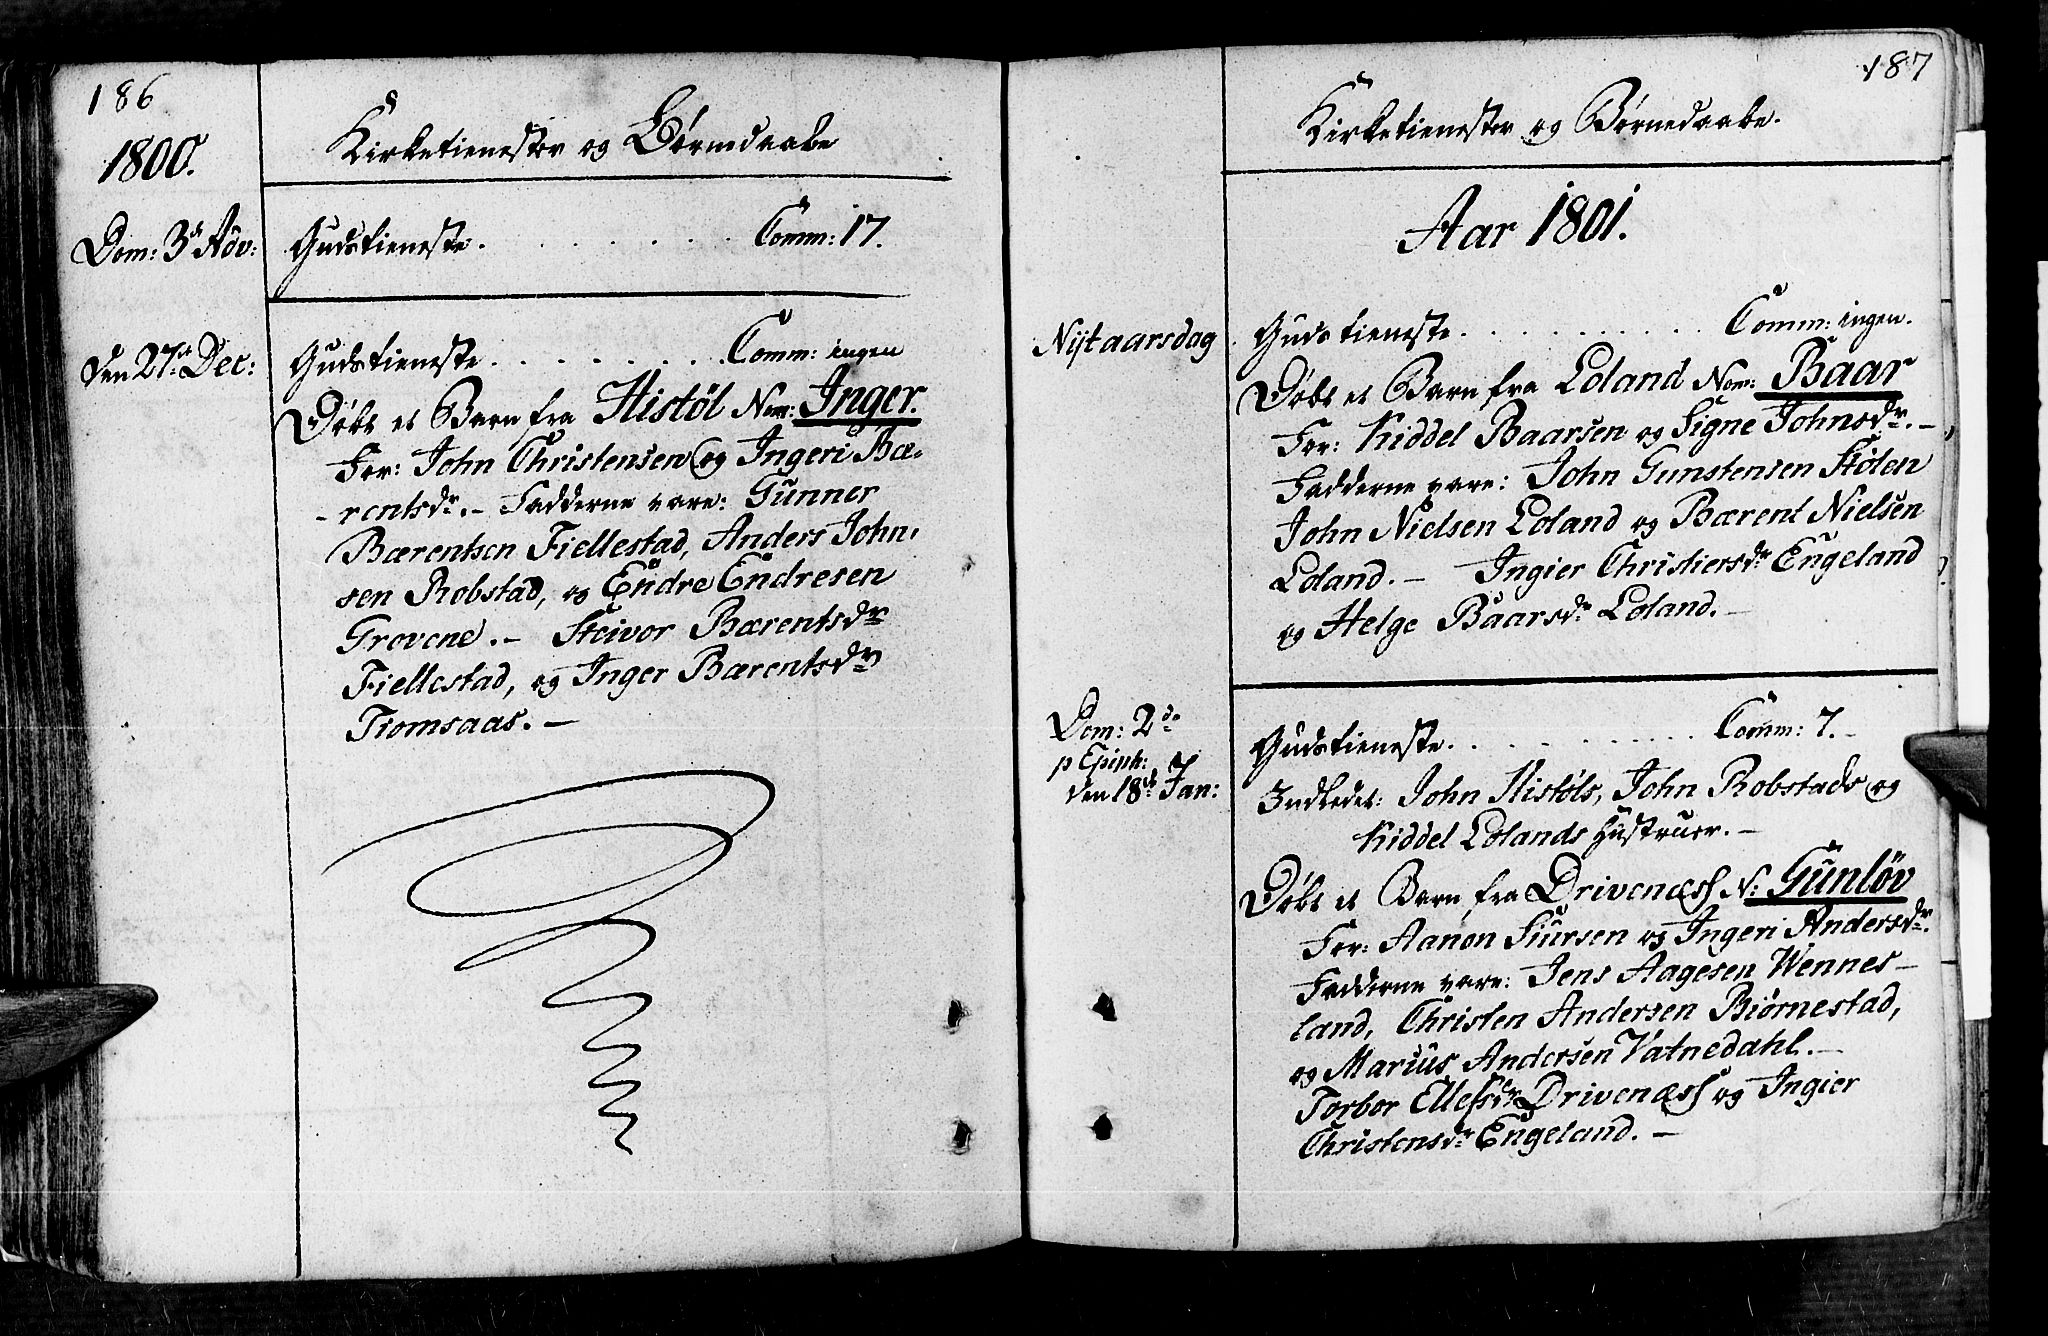 186
1800.
Kirketienester og Børnedaabe
Dom: 3de Adv:
Gudstieneste. . . . . . . . Comm: 17.
den 27de Dec:
Gudstieneste. . . . . . . . Comm: ingen
Døbt et Barn fra Histøl Nom: Inger.
For: John Christensen og Ingeri Bæ-
-rentsdr. - Fadderne vare: Gunner
Bærentsen Fiellestad, Anders John-
sen Robstad, og Endre Endresen
Grovene. - Steivor Bærentsdr
Fiellestad, og Inger Bærentsdr
Tromsaas. -
187
Kirketienester og Børnedaabe.
Aar 1801.
Nijtaarsdag
Gudstieneste. . . . . . . . . Comm: ingen.
Døbt et Barn fra Loland Nom: Baar
For: Kiddel Baarsen og Signe Johnsdr. -
Fadderne vare: John Gunstensen Stølen
John Nielsen Loland og Bærent Nielsen
Loland. - Ingier Christiersdr Engeland
og Helge Baarsdr Loland. -
Dom: 2de
p Epiph:
den 18de Jan:
Gudstieneste. . . . . . . . . Comm: 7. -
Indledet: John Histøls, John Robstads og
Kiddel Lolands Hustruer. -
Døbt et Barn fra Drivenæss N: Gunløv
For: Aanon Siursen og Ingeri Andersdr.
Fadderne vare: Jens Aagesen Wennes-
land, Christen Andersen Biørnestad,
og Marius Andersen Vatnedahl. -
Torbor Ellefsdr Drivenæss og Ingier
Christensdr Engeland. -